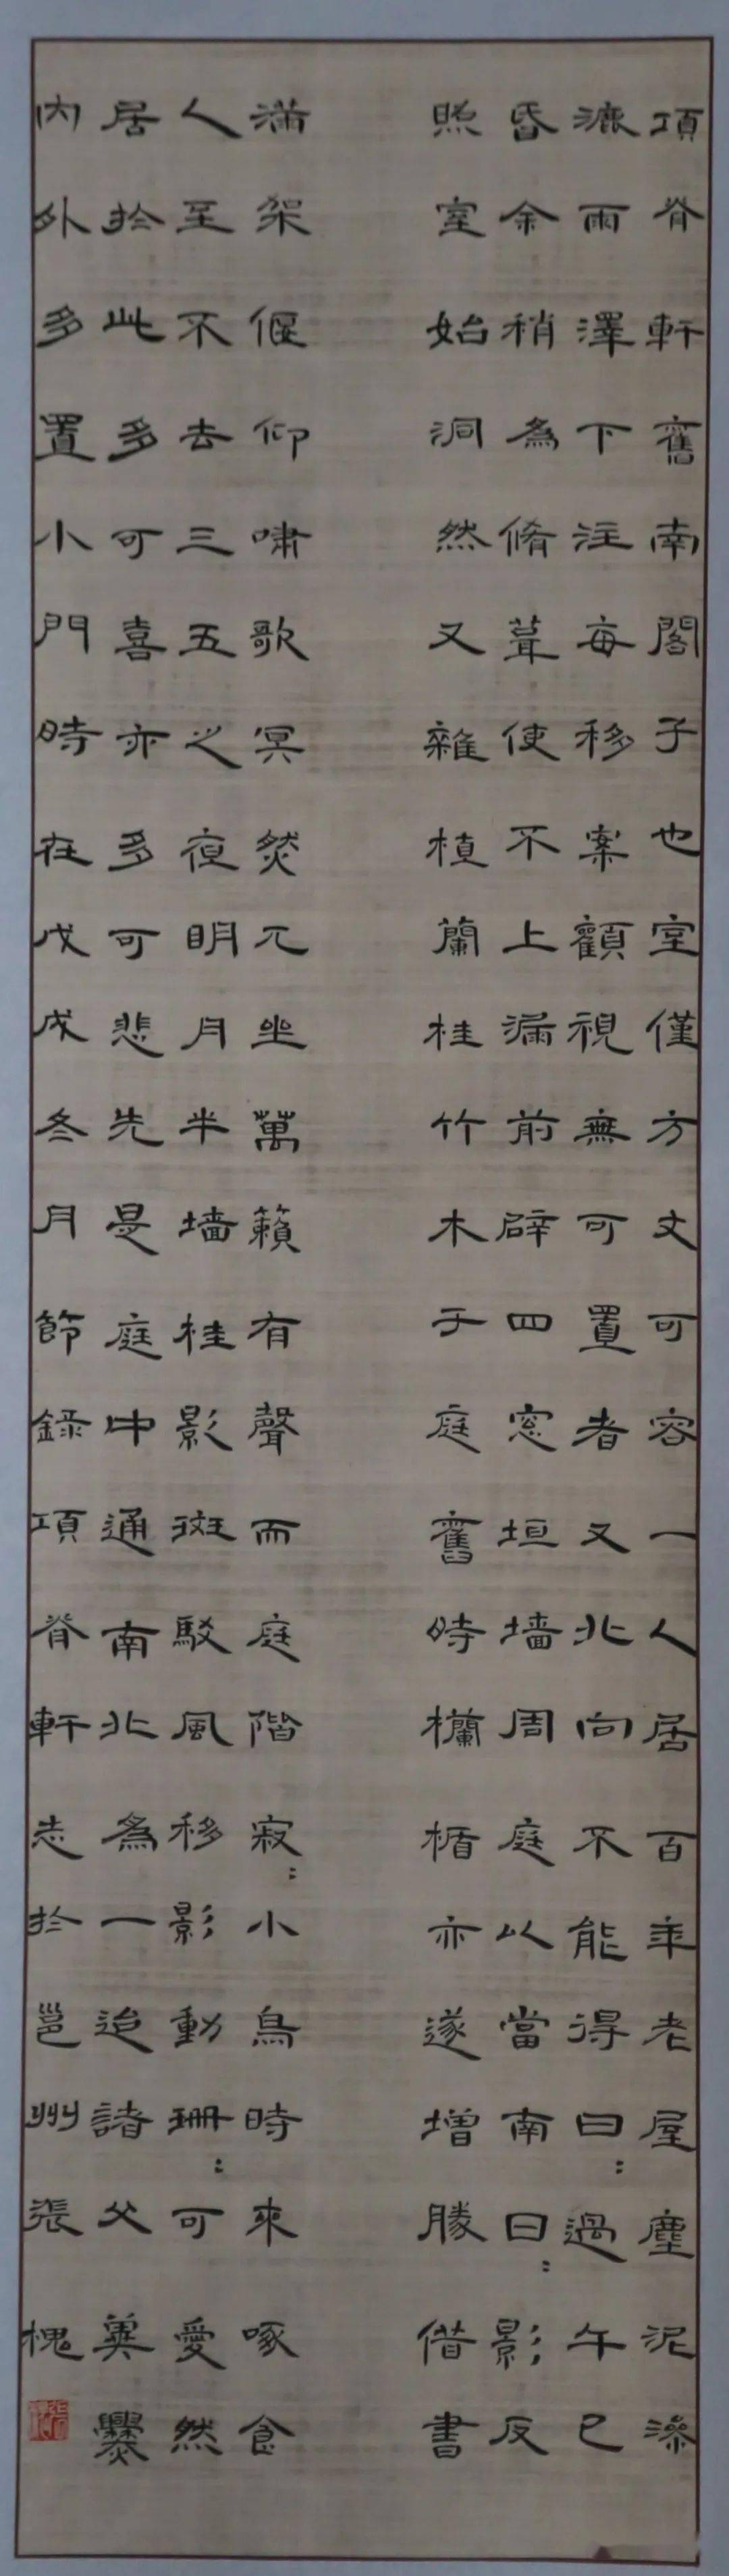 項脊軒舊南閣子也室僅方丈可容一人居百年老屋塵泥滲
漉雨澤下注每移案顧視無可置者又北向不能得日:過午已
昏余稍為脩葺使不上漏前辟四窓垣墙周庭以當南日:影反
照室始洞然又雜植蘭桂竹木于庭舊時欄楯亦遂增勝借書
滿架偃仰嘯歌冥然兀坐萬籟有聲而庭階寂:小鳥時來啄食
人至不去三五之夜明月半墙桂影斑駁風移影動珊:可愛然
居於此多可喜亦多可悲先是庭中通南北為一迨諸父異爨
內外多置小門時在戊戌冬月節錄項脊軒志於邕州張槐